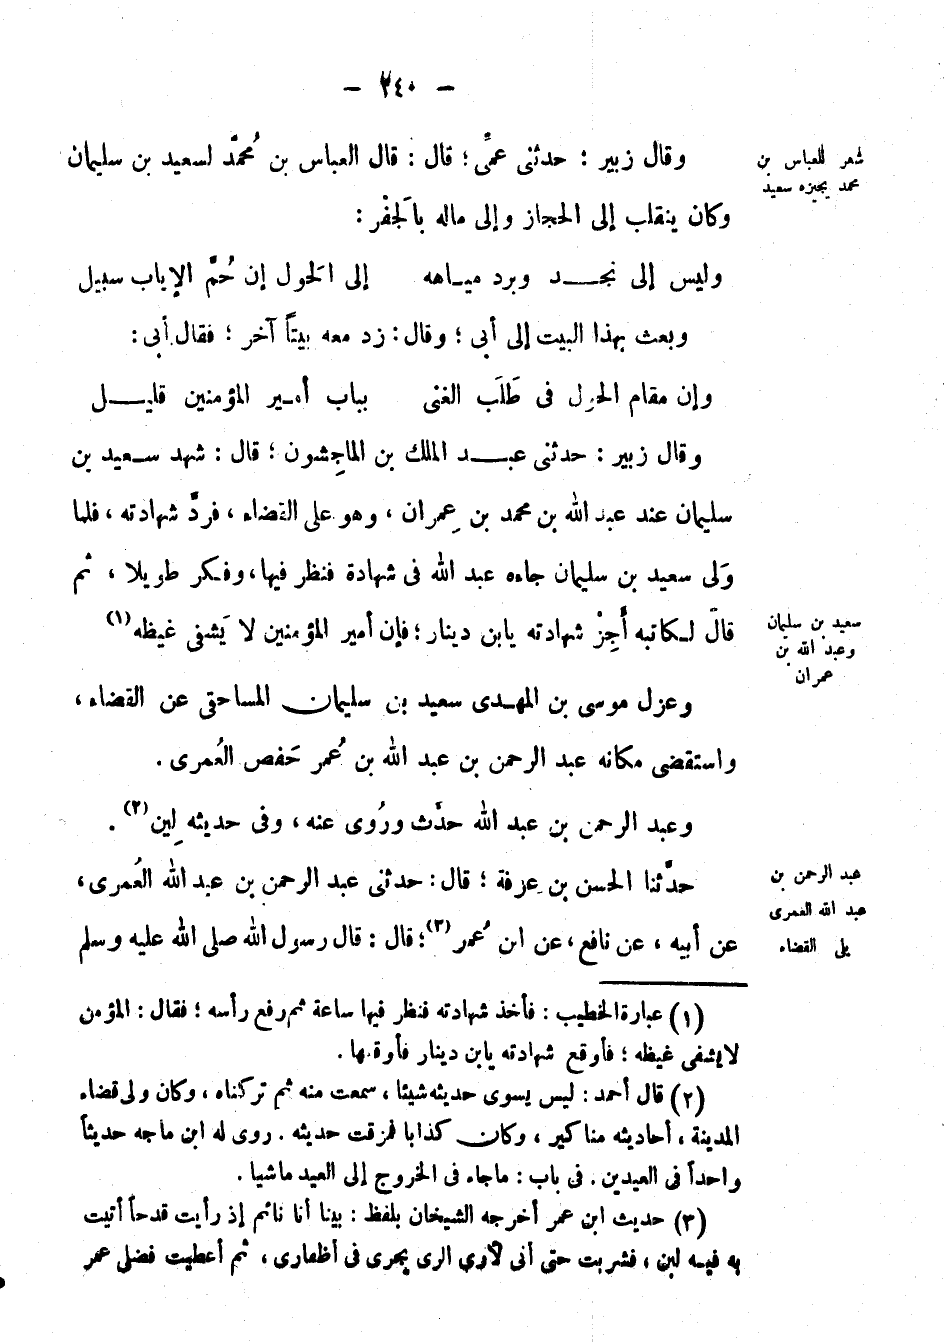 — ٢٤٠ —
وقال زبير : حدثنى عمىِّ ؛ قال : قال العباس بن مُحمَّد لسعيد بن سليمان
شعر للعباس بن
محمد يجيزه سعيد
وكان ينقلب إلى الحجاز وإلى ماله بالَجفْر :
وليس إلى نجد وبرد مياهه إلى الَحول إن حُمَّ الإياب سبيل
وبعث بهذا البيت إلى أبى ؛ وقال : زد معه بيتاً آخر ؛ فقال أبى :
وإن مقام الحول فى طَلَب الغنى بباب أمير المؤمنين قليل
وقال زبير : حدثنى عبد الملك بن الماجِشون ؛ قال : شهد سعيد بن
سليمان عند عبد الله بن محمد بن عِمران ، وهو على القضاء ، فردَّ شهادته ، فلما
وَلى سعيد بن سليمان جاءه عبد الله فى شهادة فنظر فيها ، وفكر طويلا ، ثم
قال لكاتبه أَجِزْ شهادته يابن دينار ؛ فإن أمير المؤمنين لا يَشفى غيظه (١)
سعيد بن سليمان
وعبد الله بن
عمران
وعزل موسى بن المهدى سعيد بن سليمان المساحقى عن القضاء ،
واستقضى مكانه عبد الرحمن بن عبد الله بن عُمر حَفص العُمرى .
وعبد الرحمن بن عبد الله حدَّث ورُوى عنه ، وفى حديثه لِين (٢) .
حدَّثنا الحسن بن عرفة ؛ قال : حدثنى عبد الرحمن بن عبد الله العُمرى ،
عبد الرحمن بن
عبد الله العمرى
يلى القضاء
عن أبيه ، عن نافع ، عن ابن عُمر (٣) ؛ قال : قال رسول الله صلى الله عليه وسلم
(١) عبارة الخطيب : فأخذ شهادته فنظر فيها ساعة ثم رفع رأسه ؛ فقال : المؤمن
لا يشفى غيظه ؛ فأوقع شهادته يابن دينار فأوقها .
(٢) قال أحمد : ليس يسوى حديثه شيئا ، سمعت منه ثم تركناه ، وكان ولى قضاء
المدينة ، أحاديثه مناكير ، وكان كذابا فمزقت حديثه . روى له ابن ماجه حديثاً
واحداً فى العيدين . فى باب : ماجاء فى الخروج إلى العيد ماشيا .
(٣) حديث ابن عمر أخرجه الشيخان بلفظ : بينا أنا نائم إذ رأيت قدحاً أتيت
به فيه لبن ، فشربت حتى أنى لأرى الرى يجرى فى أظفارى ، ثم أعطيت فضلى عمر